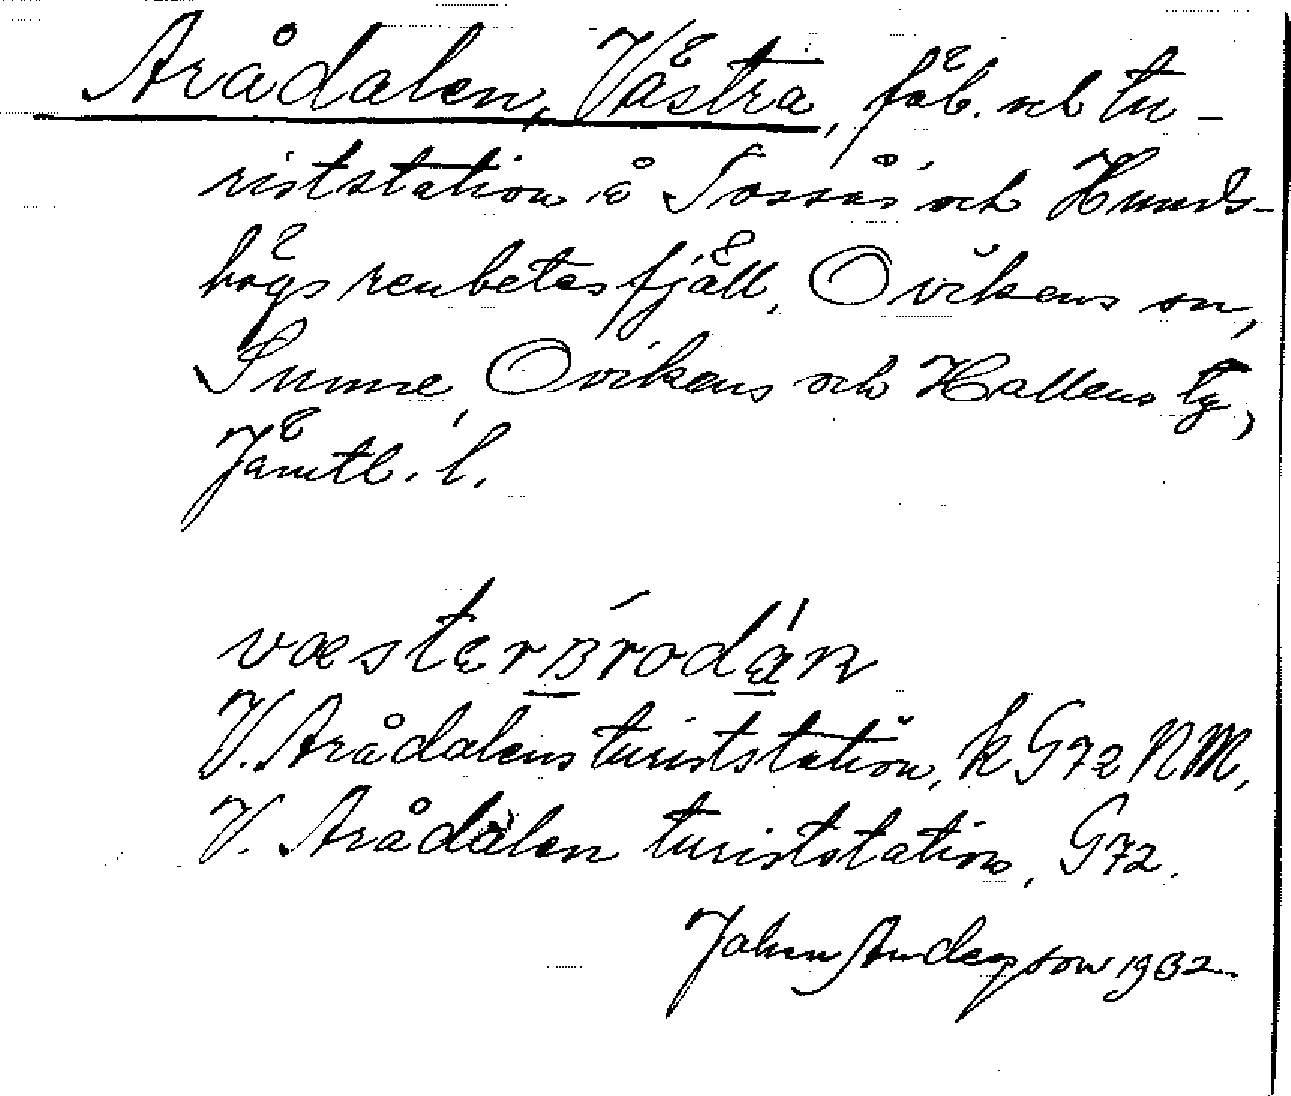 Arådalen, Västra, fäb. och tu-
riststation å Tossås och Hunds-
högs renbetesfjäll, Ovikens sn,
Sunne, Ovikens och Hallens tg,
Jämtl. l.
væster
V. Arådalens turiststation, k G72 NM,
V. Arådalen turiststation, G72.
John Anderson 1932